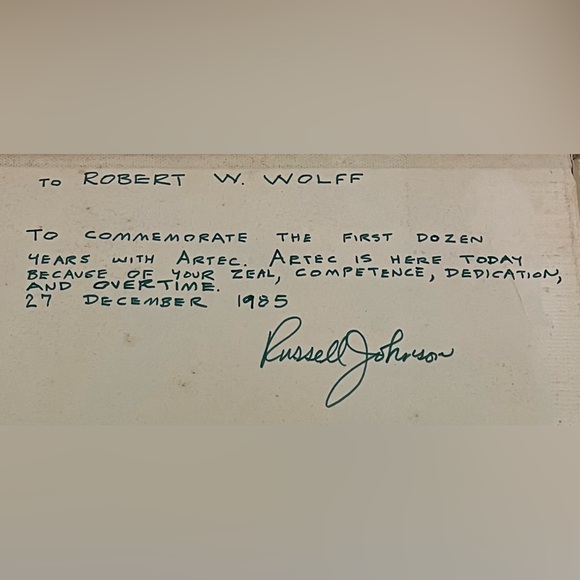 TO ROBERT W. WOLFF
TO COMMEMORATE THE FIRST DOZEN
YEARS WITH ARTEC. ARTEC IS HERE TODAY
BECAUSE OF YOUR ZEAL, COMPETENCE, DEDICATION,
AND OVERTIME.
27 DECEMBER 1985
Russell Johnson